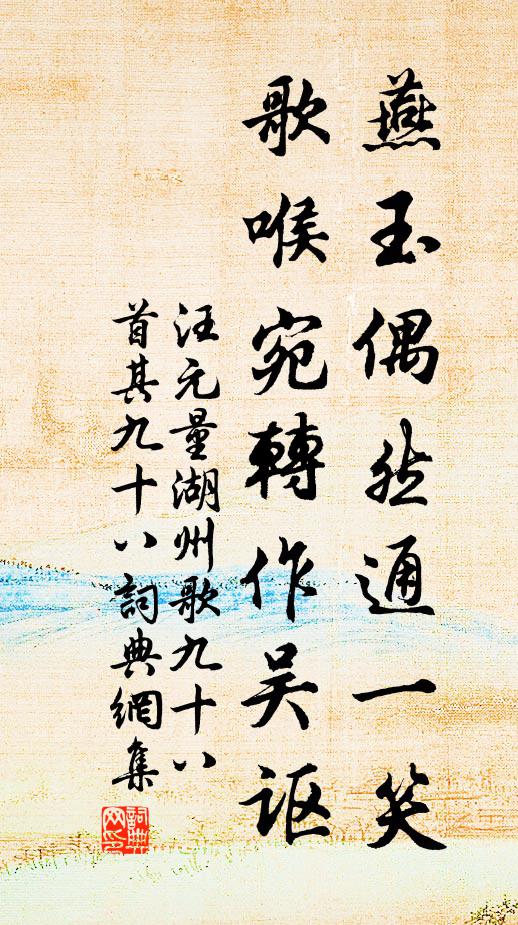 燕玉偶然通一笑
歌喉宛轉作吴讴
汪元量湖州歌九十八
首其九十八詞典網集
詞典网印